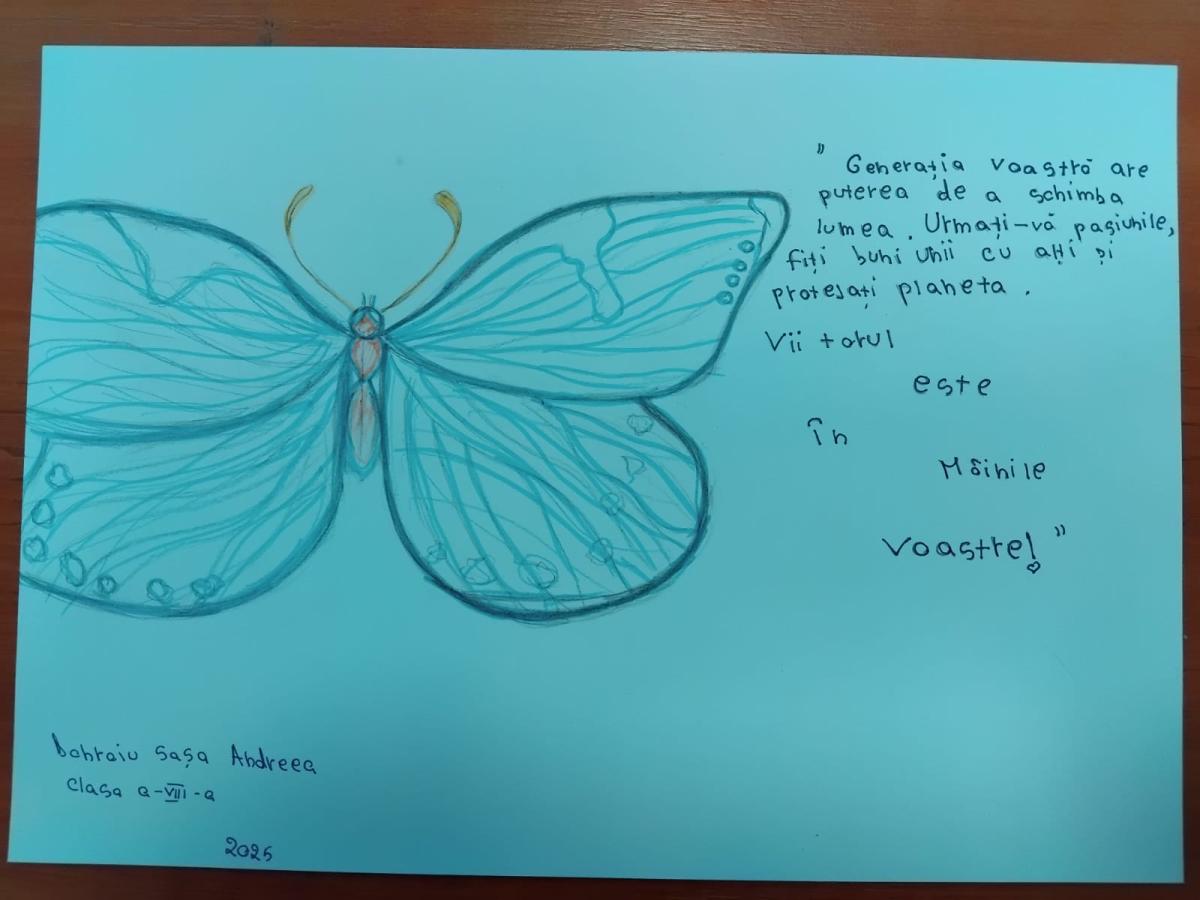 " Generația voastră are
puterea de a schimba
lumea. Urmați-vă pasiunile,
fiți buni unii cu alți și
protejați planeta.
Viitorul
este
în
Mâinile
voastre! "
Sașa Andreea
Clasa a-VIII-a
2025